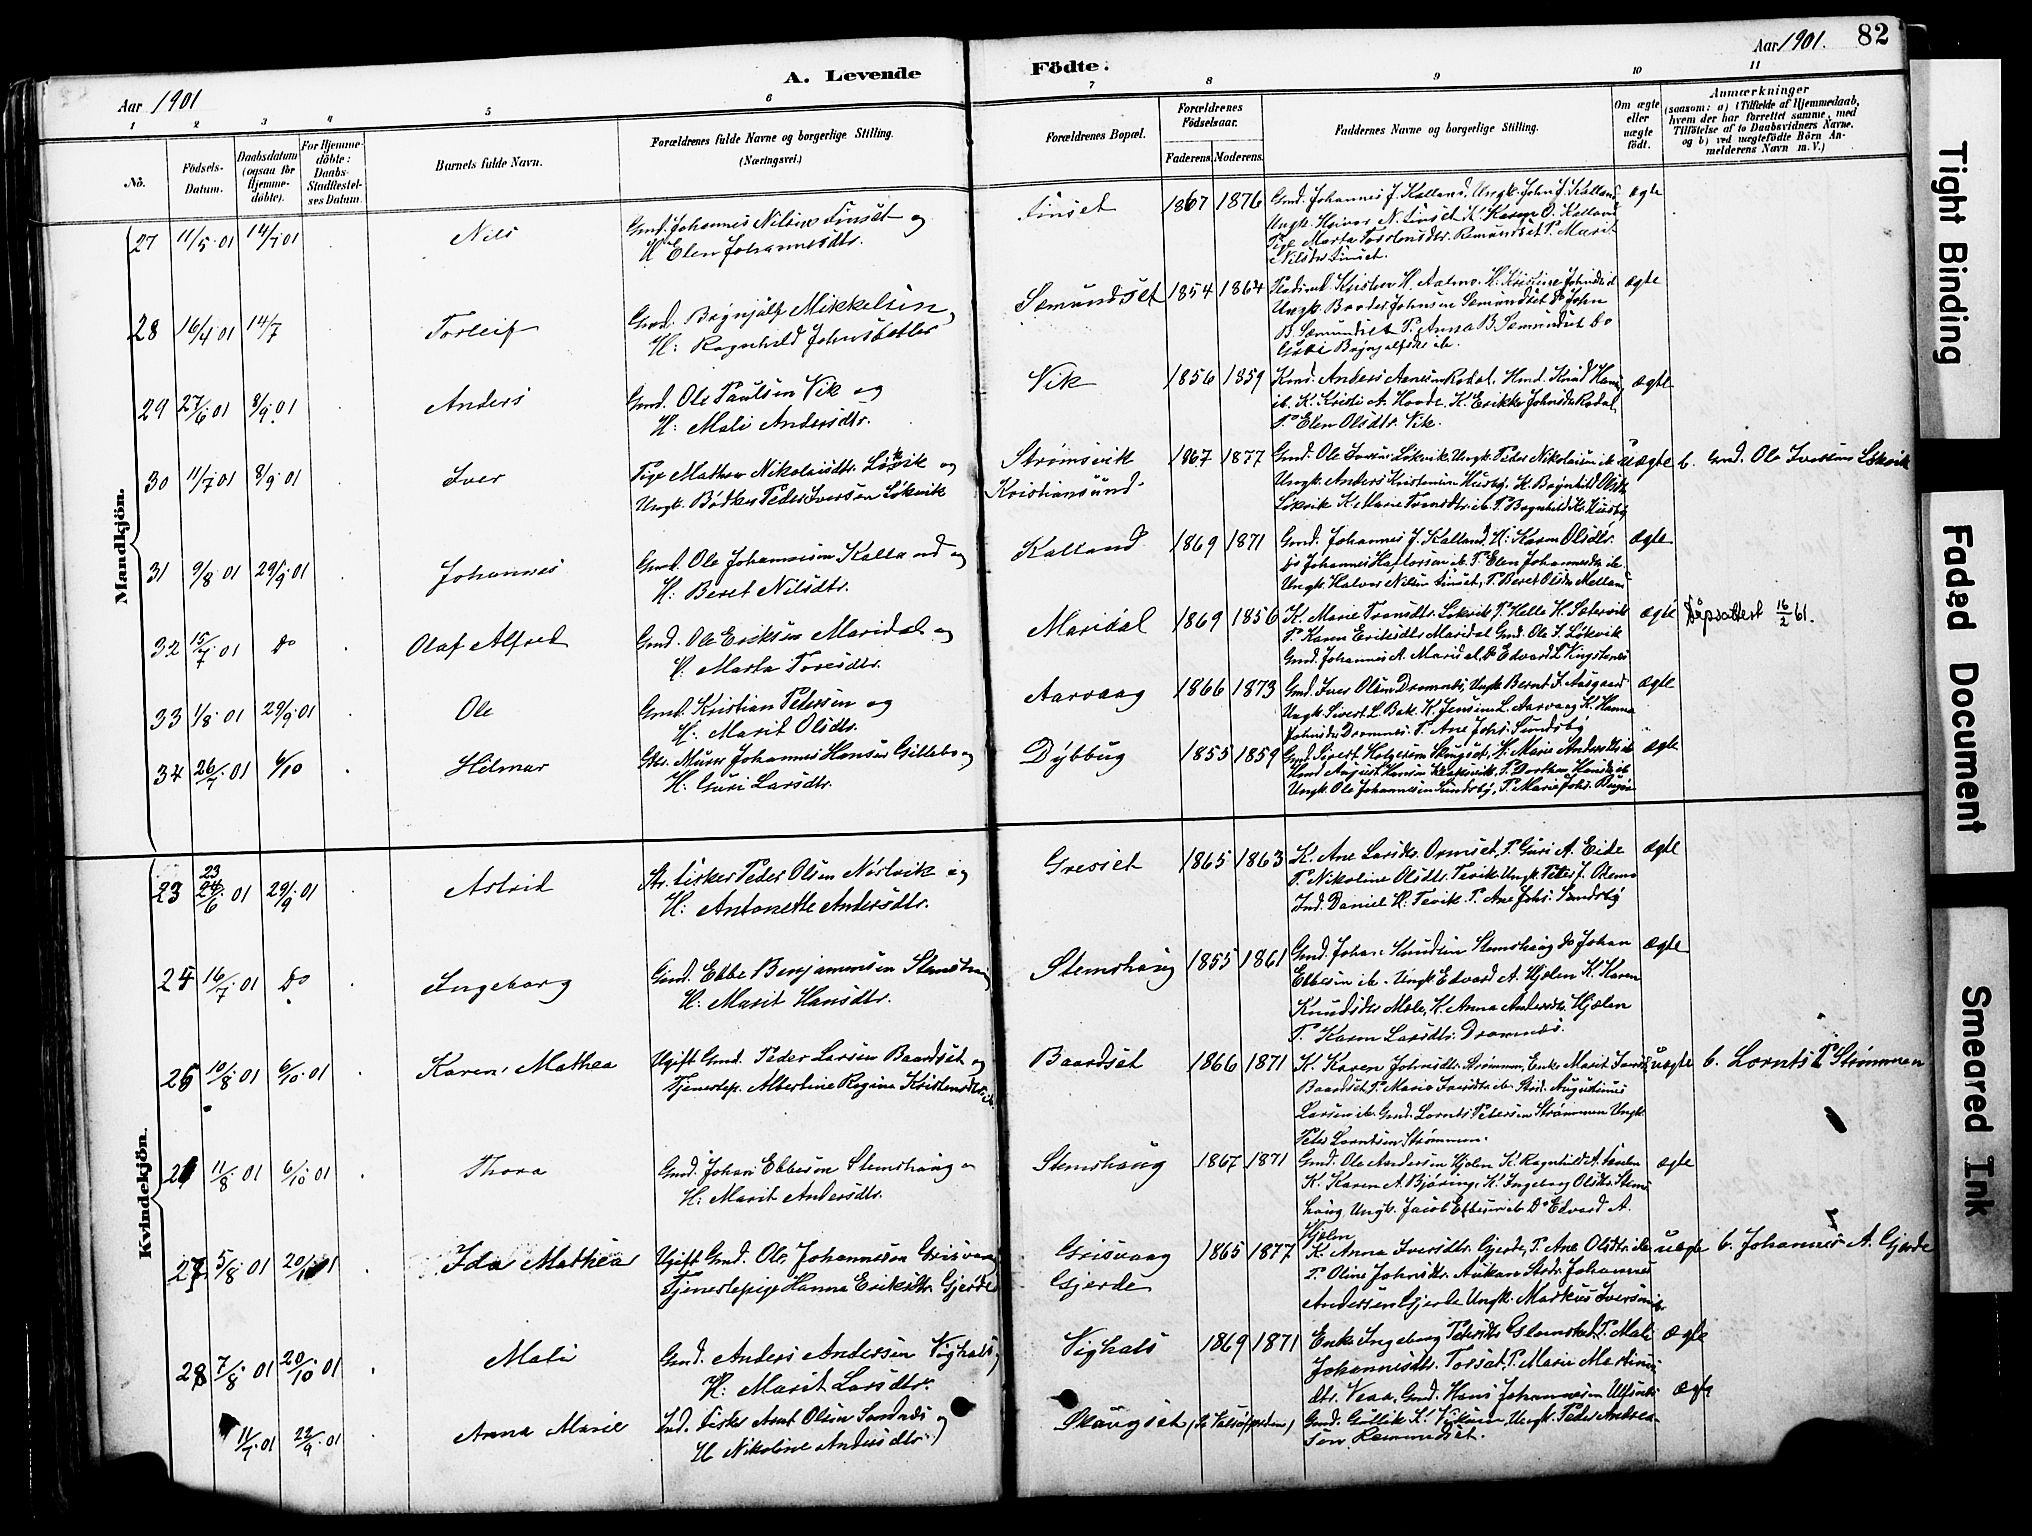 Aar 1901
A. Levende Födte.
Aar 1901. 82
1 2 3 4 5 6 7 8 9 10 11
No.
Födsels-
Datum.
Daabsdatum
(ogsaa for
Hjemme-
döbte).
For Hjemme-
döbte:
Daabs-
Stadfæstel-
ses Datum.
Barnets fulde Navn.
Forældrenes fulde Navne og borgerlige Stilling.
(Næringsvei.)
Forældrenes Bopæl.
Forældrenes
Födselsaar.
Faderens. Moderens.
Faddernes Navne og borgerlige Stilling.
Om ægte
eller
uægte
födt.
Anmærkninger
(saasom: a) i Tilfælde af Hjemmedaab,
hvem der har forrettet samme, med
Tilföielse af to Daabsvidners Navne,
og b) ved uægtefödte Börn An-
melderens Navn m. V.)
Mandkjön.
27 11/5 01 14/7 01 Nils
Gmd. Johannes Nilsen Finset og
H. Elen Johannesdtr.
Finset 1867 1876
Gmd. Johannes J. Kalland, Ungk. John J. Kalland
Ungk. Haivor N. Finset K. Karen O. Kalland
Pige Marta Torstensdtr. Remundset P. Marit
Nilsdtr. Finset.
ægte
28 16/4 01 14/7 Torleif
Gmd. Brynjulf Mikkelsen,
H. Ragnhild Johnsdatter
Semundset 1854 1864
Ungk. Baarder Johnsen Semundset Do John
B. Semundset P. Anna B. Semundset Do
Guri Brynjulfsdtr. ib.
ægte
29 27/6 01 8/9 01 Anders
Gmd. Ole Paulsen Vik og
H: Mali Andersdtr.
Vik 1856 1859
Kmd. Anders Arnesen Rodal, Hmd. Knud Hans
ib. K. Kristi A. Hovde, K. Erikke Johnsdtr. Rodal
P. Elen Olsdtr. Vik.
ægte
30 11/7 01 8/9 01 Iver
Pige Mathea Nikolaisdtr. Løkvik og
Ungk. Bødker Peder Iversen Løkvik
Strømsvik
Kristiansund
1867 1877
Gmd. Ole Iversen Løkvik Ungk. Peder Nikolaisen ib
Ungk. Anders Kristensen Husby, K. Ragnhild Olsdtr.
Løkvik K. Marie Tronsdtr. ib. P. Ragnhild K. Husby
uægte
b. Gmd. Ole Iversen Løkvik
31 9/8 01 29/9 01 Johannes
Gmd. Ole Johannesen Kalland og
H: Beret Nilsdtr.
Kalland 1869 1871
Gmd. Johannes J. Kalland, H: Karen Olsdtr.
Do Johannes Haflorsen ib. P. Elen Johannesdtr. ib.
Ungk. Halvor Nilsen Finset, P. Beret Olsdtr. Melland
ægte
32 15/7 01 Do Olaf Alfred
Gmd. Ole Eriksen Maridal og
H. Marta Toresdtr.
Maridal 1869 1856
K. Marie Tronsdtr. Løkvik P. Helle H. Sætervik
P. Karen Eriksdtr. Maridal Gmd. Ole I. Løkvik
Gmd. Johannes A. Maridal, Do Edvard L. Kingstenes
ægte
Dåpsattest 16/2 61.
33 1/8 01 29/9 01 Ole
Gmd. Kristian Petersen og
H. Marit Olsdtr.
Aarvaag 1866 1873
Gmd. Iver Olsen Dromnes, Ungk. Bernt I. Aasgaard
Ungk. Sivert L. Bak. K. Jensine L. Aarvaag K. Hanna
Johnsdtr. Dromnes. P. Ane Johs. Sundsby
ægte
34 26/7 01 6/10 Hilmar
Gbr. Murer Johannes Hansen Gilleboe og
H: Guri Larsdtr.
Dybbug 1855 1859
Gmd. Sivert Holgersen Skugset, K. Marie Andersdtr. ib
Hmd. August Hansen Klakervik, P. Dorthea Hansdtr. ib
Ungk. Ole Johannesen Sundsby, P. Marie Johs. Bugen
ægte
Kvindekjön.
23 23 24/6 01 29/9 01 Astrid
Str. Fisker Peder Olsen Nørtvik og
H: Antonette Andersdtr.
Gresset 1865 1863
K. Ane Larsdtr. Ormset, P. Guri A. Eide
P. Nikoline Olsdtr. Tevik Ungk. Peter J. Odmo
Ind. Daniel H. Tevik P. Ane Johs. Sundsby
ægte
24 16/7 01 Do Ingeborg
Gmd. Ebbe Benjaminsen Stemshaug
H: Marit Hansdtr.
Stemshaug 1855 1861
Gmd. Johan Knudsen Stemshaug Do Johan
Ebbesen ib. Ungk. Edvard A. Hjelen K. Karen
Knudsdtr. Mele, K. Anna Andersdtr. Hjelen
P. Karen Larsdtr. Dromnes.
ægte
25 10/8 01 6/10 01 Karen Mathea
Ugift Gmd. Peder Larsen Baardset og
Tjenestep. Albertine Regine Kristensdtr. ib.
Baardset 1866 1871
K. Karen Johnsdtr. Strømmen, Enke Marit Larsdtr.
Baardset, P. Maria Larsdtr. ib. Stud. Augustinus
Larsen ib. Gmd. Lornts Petersen Strømmen Ungk.
Peter Lorntsen Strømmen.
uægte
b. Lornts P. Strømmen
26 11/8 01 6/10 01 Thora
Gmd. Johan Ebbesen Stemshaug og
H. Marit Andersdtr.
Stemshaug 1867 1871
Gmd. Ole Andersen Hjelen K. Ragnhild A. Hjelen
K. Karen A. Bjøring, K. Ingeborg Olsdtr. Stems
haug Ungk. Jacob Ebbesen ib. Do Edvard A.
Hjelen
ægte
27 5/8 01 20/10 01 Ida Mathea
Ugift Gmd. Ole Johannesen Grisvaag
Tjenestepige Hanna Eriksdtr. Gjerde
Grisvaag
Gjerde
1865 1877
K. Anna Iversdtr. Gjerde, P. Ane Olsdtr. ib
P. Oline Johnsdtr. Aukan Stud. Johannes
Andersen Gjerde Ungk. Markus Iversen ib.
uægte
b. Johannes A. Gjerde
28 7/8 01 20/10 01 Mali
Gmd. Anders Andersen Vighals og
H: Marit Larsdtr.
Vighals 1869 1871
Enke Ingeborg Pedersdtr. Glemstad, P. Mali
Johannesdtr. Torset, P. Marie Martinus
dtr. Veaa, Gmd. Hans Johannesen Ulfsnes
ægte
11/7 01 22/9 01 Anna Marie
Ind. Fisker Arnt Olsen Sandnes og
H. Nikoline Andersdtr.
Skaugset (i Valsøfjorden)
Gmd. Gullik K. Viken, Ungk. Peder Andrea-
sen Remmedset.
ægte
Tight Binding
Faded Document
Smeared Ink